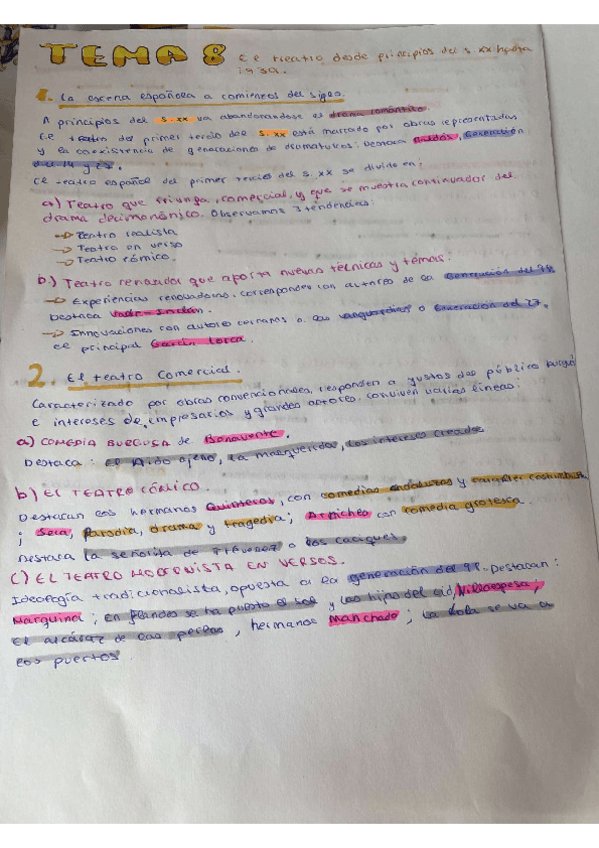 TEMA 8 El teatro desde principios del s. XX hasta
1939.
1. La escena española a comienzos del siglo.
A principios del s.XX va abandonandose el drama romántico.
El teatro del primer tercio del s.XX está marcado por obras representadas
y la coexistencia de generaciones de dramaturgos: Destaca Galdós, Generación
del 14 y 27.
El teatro español del primer tercio del s. XX se divide en:
a) Teatro que triunfa, comercial, y que se muestra continuador del
drama decimonónico. Observamos 3 tendencias:
→ Teatro realista
→ Teatro en verso
→ Teatro cómico.
b) Teatro renovador que aporta nuevas técnicas y temas:
→ Experiencias renovadoras. corresponden con autores de la Generación del 98.
Destaca Valle-Inclán.
→ Innovaciones con autores cercanos a las vanguardias o Generación del 27.
el principal García Lorca.
2. El teatro comercial.
Caracterizado por obras convencionales, responden a gustos del público burgués
e intereses de empresarios y grandes actores. conviven varias líneas:
a) COMEDIA BURGUSA de Benavente.
Destaca: el nido ajeno, la malquerida, los intereses creados
b) EL TEATRO CÓMICO.
Destacan los hermanos Quinteros, con comedias andaluzas y carácter costumbrista
; Seca, parodia, drama y tragedia; Arniches con comedia grotesca.
Destaca la señorita de Trévelez o los caciques.
C) EL TEATRO MODERNISTA EN VERSOS.
Ideología tradicionalista, opuesta a la generación del 98. Destacan:
Marquina; en flandes se ha puesto el sol y las hijas del cid, Villaespesa,
El alcázar de las perlas, hermanos Manchado; la Lola se va a
los puertos.